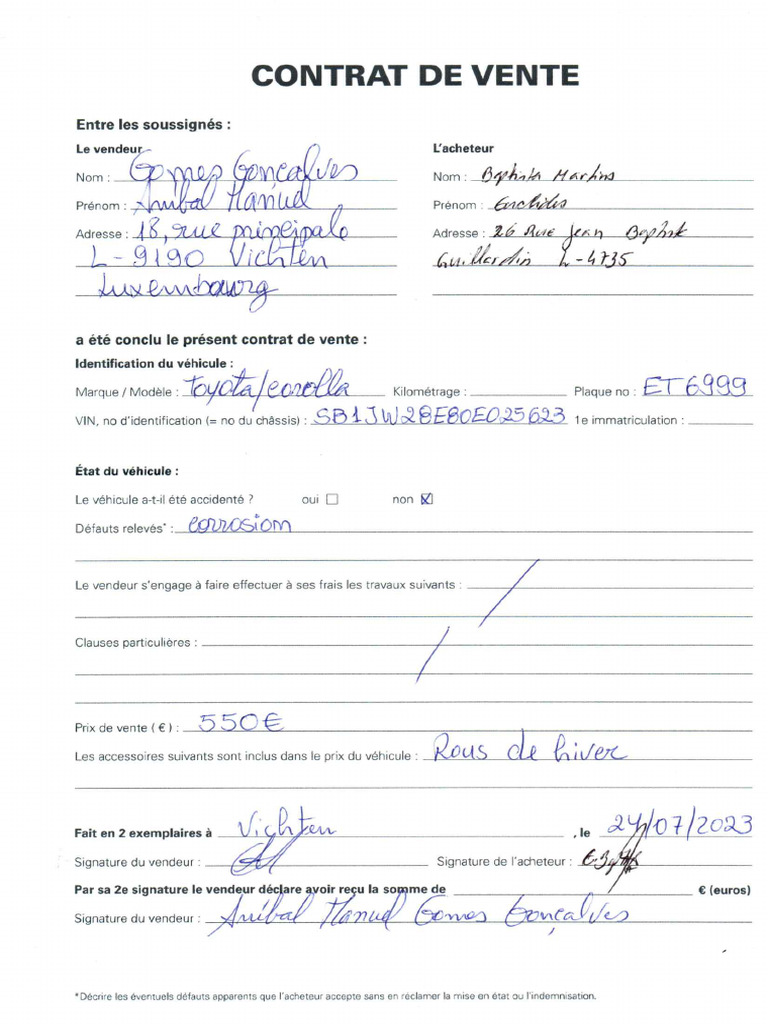 CONTRAT DE VENTE
Entre les soussignés :
Le vendeur
L'acheteur
Nom : Gomes Gonçalves
Nom : Baptista Martins
Prénom : Aníbal Manuel
Prénom : Euclides
Adresse : 18, rue principale
Adresse : 26 Rue Jean Baptiste
L-9190 Vichten
Guillardin L-4735
Luxembourg
a été conclu le présent contrat de vente :
Identification du véhicule :
Marque / Modèle : Toyota/corolla Kilométrage : Plaque no : ET6999
VIN, no d'identification (= no du châssis) : SB1JW28E80E025623 1e immatriculation :
État du véhicule :
Le véhicule a-t-il été accidenté ? oui ☐ non ☒
Défauts relevés* : corrosiom
Le vendeur s'engage à faire effectuer à ses frais les travaux suivants : /
Clauses particulières : /
Prix de vente ( € ) : 550€
Les accessoires suivants sont inclus dans le prix du véhicule : Rous de hiver
Fait en 2 exemplaires à Vichten , le 24/07/2023
Signature du vendeur : Signature de l'acheteur :
Par sa 2e signature le vendeur déclare avoir reçu la somme de € (euros)
Signature du vendeur : Aníbal Manuel Gomes Gonçalves
*Décrire les éventuels défauts apparents que l'acheteur accepte sans en réclamer la mise en état ou l'indemnisation.